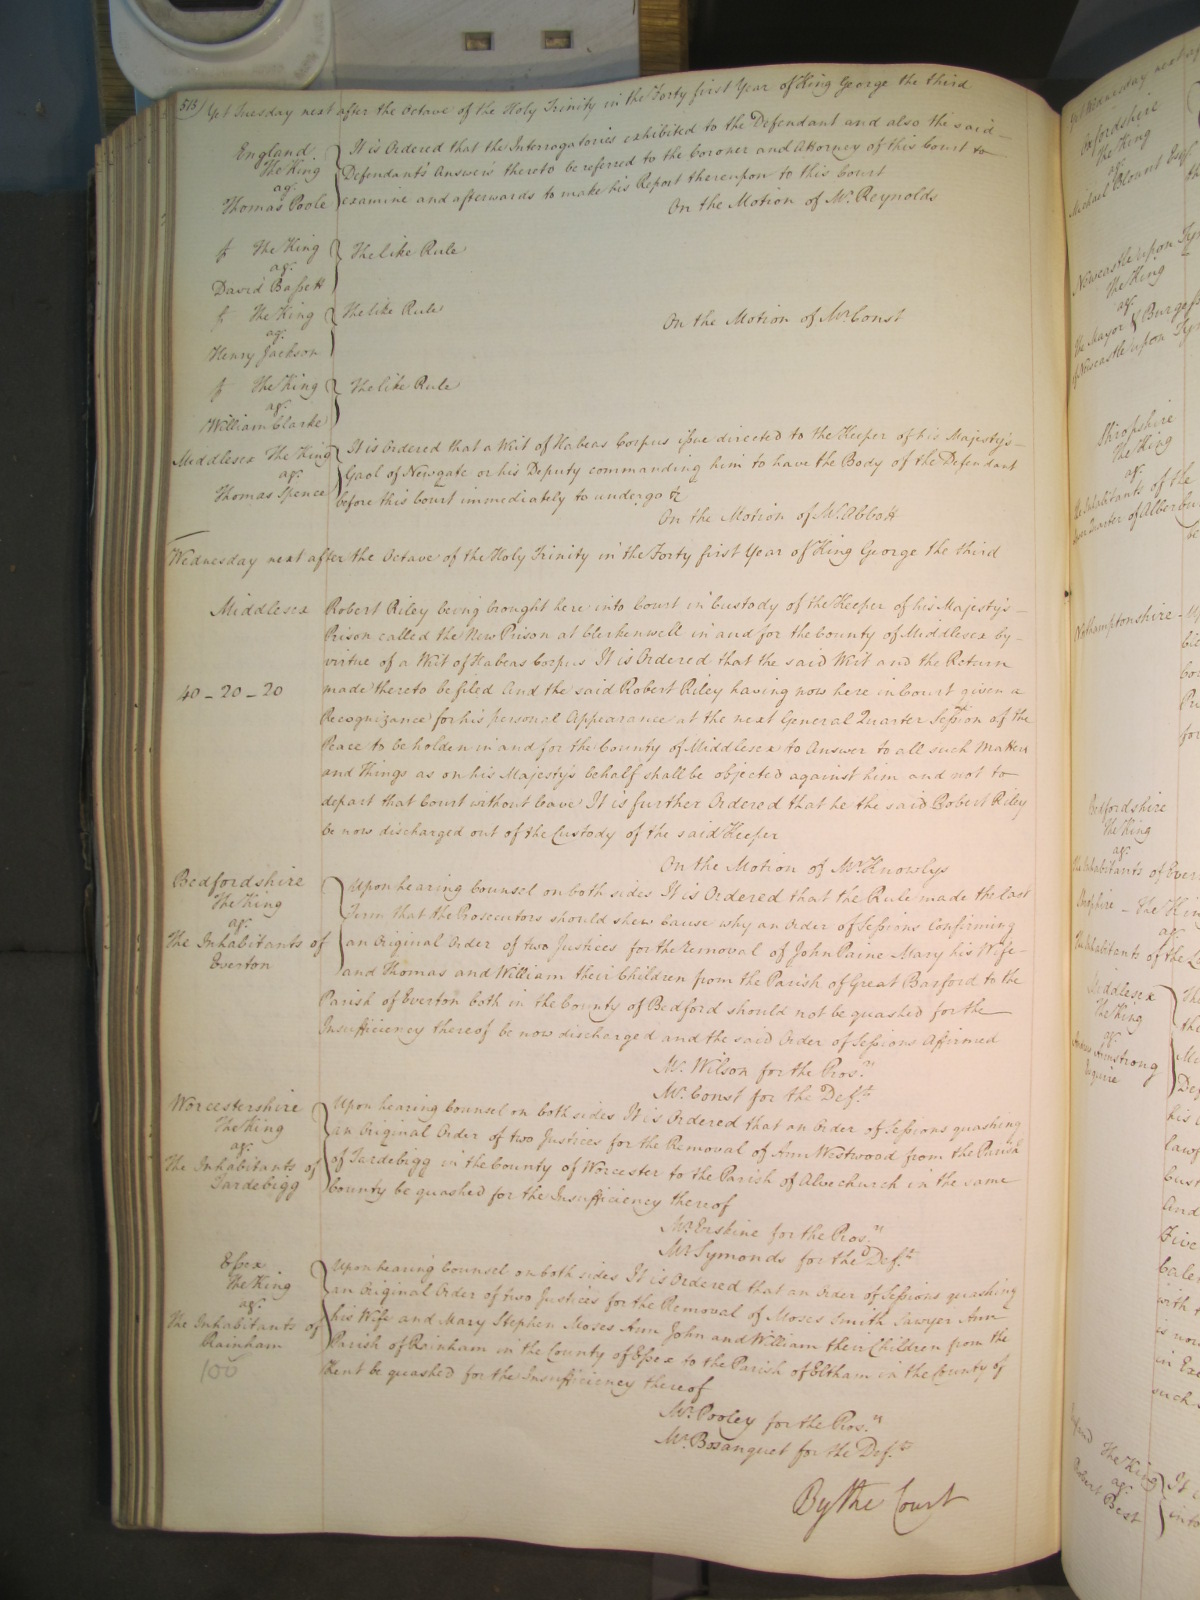 518) Yet Tuesday next after the Octave of the Holy Trinity in the Forty first Year of King George the third
England. The King agt. Thomas Poole
It is Ordered that the Interrogatories exhibited to the Defendant and also the said
Defendant's Answers thereto be referred to the Coroner and Attorney of this Court to
examine and afterwards to make his Report thereupon to this Court
On the Motion of Mr. Reynolds
The King agt. David Bassett
The like Rule
The King agt. Henry Jackson
The like Rule
On the Motion of Mr. Const
The King agt. William Clarke
The like Rule
Middlesex The King agt. Thomas Spence
It is Ordered that a Writ of Habeas Corpus issue directed to the Keeper of his Majesty's
Gaol of Newgate or his Deputy commanding him to have the Body of the Defendant
before this Court immediately to undergo &c
On the Motion of Mr. Abbott
Wednesday next after the Octave of the Holy Trinity in the Forty first Year of King George the third
Middlesex
40 - 20 - 20
Robert Riley being brought here into Court in Custody of the Keeper of his Majesty's
Prison called the New Prison at Clerkenwell in and for the County of Middlesex by
virtue of a Writ of Habeas Corpus It is Ordered that the said Writ and the Return
made thereto be filed And the said Robert Riley having now here in Court given a
Recognizance for his personal Appearance at the next General Quarter Session of the
Peace to be holden in and for the County of Middlesex to Answer to all such Matters
and Things as on his Majesty's behalf shall be objected against him and not to
depart that Court without leave It is further Ordered that he the said Robert Riley
be now discharged out of the Custody of the said Keeper
On the Motion of Mr. Knowlys
Bedfordshire
The King
agt.
The Inhabitants of
Everton
Upon hearing Counsel on both sides It is Ordered that the Rule made the last
Term that the Prosecutors should shew Cause why an Order of Sessions Confirming
an Original Order of two Justices for the Removal of John Paine Mary his Wife
and Thomas and William their Children from the Parish of Great Barford to the
Parish of Everton both in the County of Bedford should not be quashed for the
Insufficiency thereof be now discharged and the said Order of Sessions Affirmed
Mr. Wilson for the Pros.rs
Mr. Const for the Def.ts
Worcestershire
The King
agt.
The Inhabitants of
Tardebigg
Upon hearing Counsel on both sides It is Ordered that an Order of Sessions quashing
an Original Order of two Justices for the Removal of Ann Westwood from the Parish
of Tardebigg in the County of Worcester to the Parish of Alvechurch in the same
County be quashed for the Insufficiency thereof
Mr. Erskine for the Pros.rs
Mr. Symonds for the Def.ts
Essex
The King
agt.
The Inhabitants of
Rainham
100
Upon hearing Counsel on both sides It is Ordered that an Order of Sessions quashing
an Original Order of two Justices for the Removal of Moses Smith Sawyer Ann
his Wife and Mary Stephen Moses Ann John and William their Children from the
Parish of Rainham in the County of Essex to the Parish of Eltham in the County of
Kent be quashed for the Insufficiency thereof
Mr. Pooley for the Pros.rs
Mr. Bosanquet for the Def.ts
By the Court
Oxfordshire
The King
agt.
Michael Blount Esq
Newcastle upon
The King
agt.
The Mayor & Burgess
of Newcastle upon
Shropshire
The King
agt.
The Inhabitants of the
Quarter of
Northamptonshire
Bedfordshire
The King
agt.
The Inhabitants of
Shropshire - The King
agt.
The Inhabitants of the
Middlesex
The King
agt.
Armstrong
Esquire
The King
agt.
Robert Best